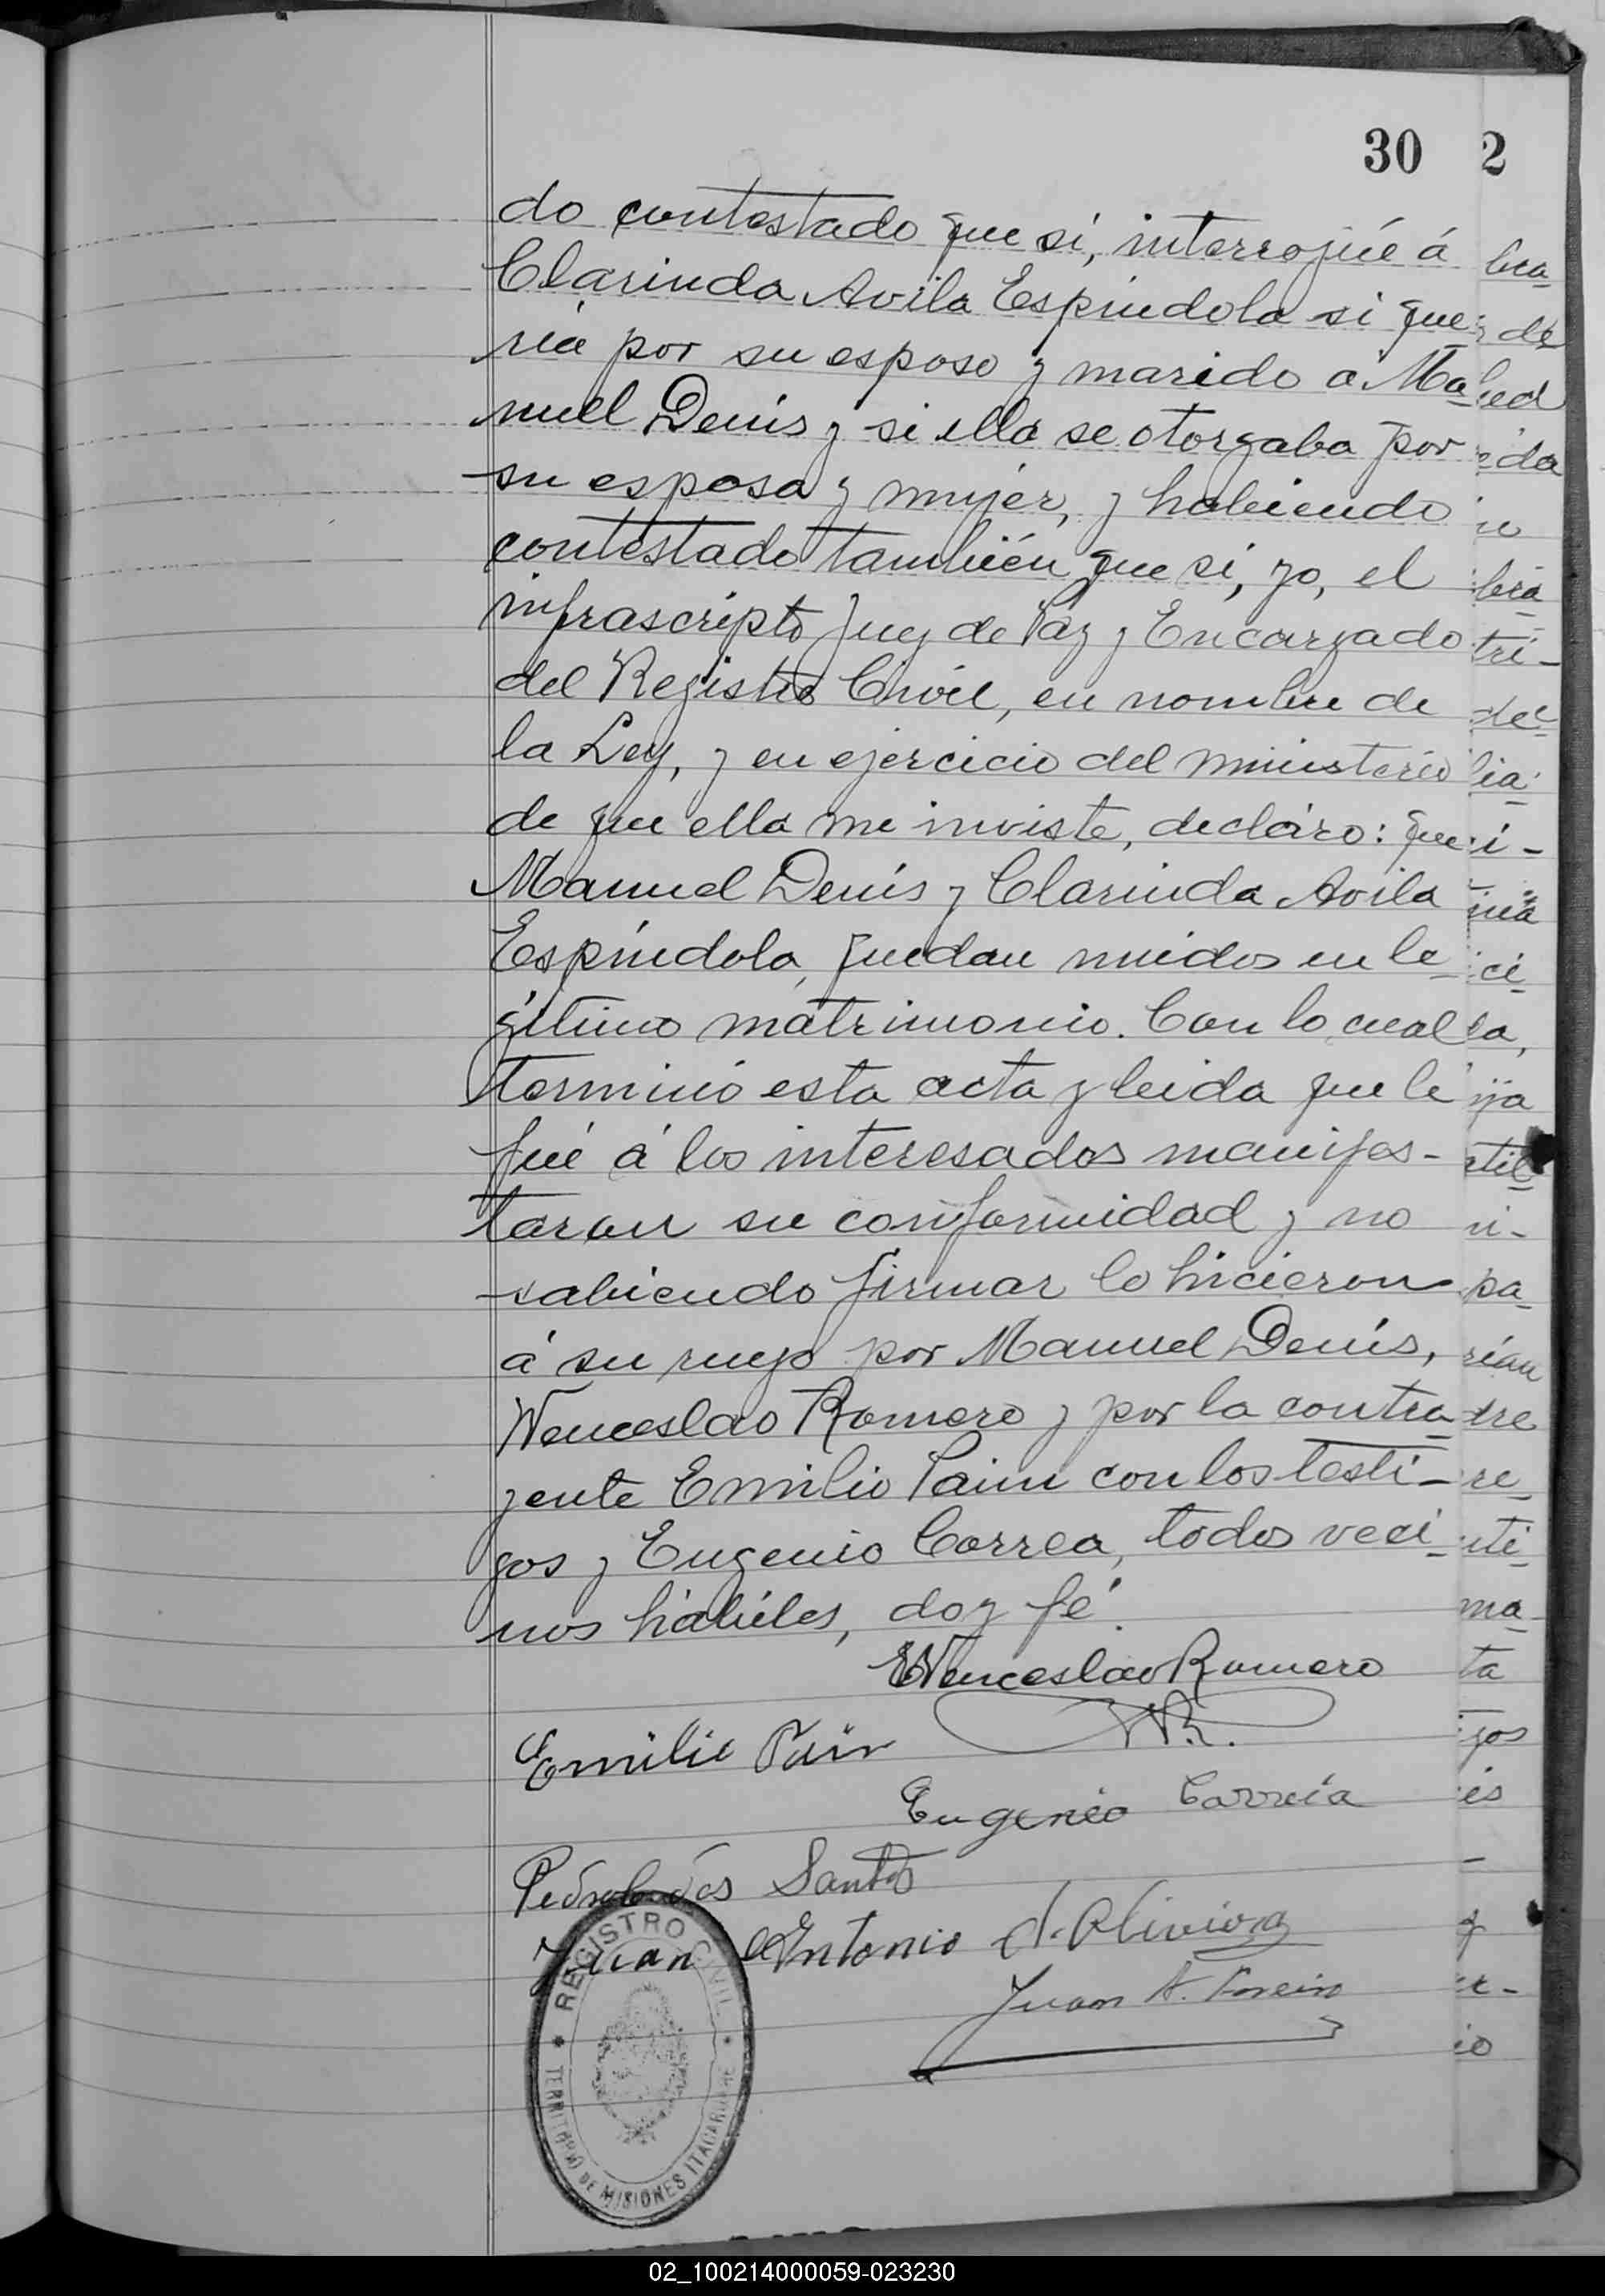 30 2
do contestado que si, interrogué á
Clarinda Avila Espíndola si que-
ría por su esposo y marido a Ma-
nuel Denis y si ella se otorgaba por
su esposa y mujér, y habiendo
contestado también que si, yo, el
infrascripto Juez de Paz y Encargado
del Registro Civil, en nombre de
la Ley, y en ejercicio del ministerio
de que ella me inviste, decláro: que
Manuel Denis y Clarinda Avila
Espíndola, quedan unidos en le-
gítimo matrimonio. Con lo cual
terminó esta acta y leida que lé
fué á los interesados manifes-
taron su conformidad y no
sabiendo firmar lo hicieron
á su ruego por Manuel Denis,
Wenceslao Romero y por la contra-
yente Emilio Paim con los testi-
gos y Eugenio Correa, todos veci-
nos hábiles, doy fé
Wenceslao Romero
W.R.
Emilio Pain
Eugenio Correia
dos Santos
Juan Antonio d. Oliviera
Juan A.
REGISTRO CIVIL
TERRITORIO DE MISIONES ITACARUARE
02_100214000059-023230